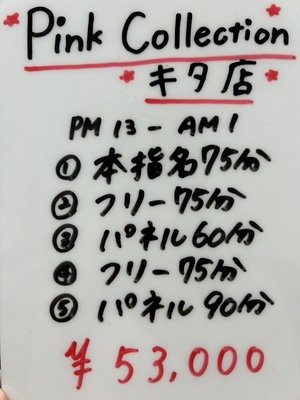 Pink Collection
キタ店
PM 13 - AM 1
① 本指名75分
② フリー75分
③ パネル60分
④ フリー75分
⑤ パネル90分
¥53,000